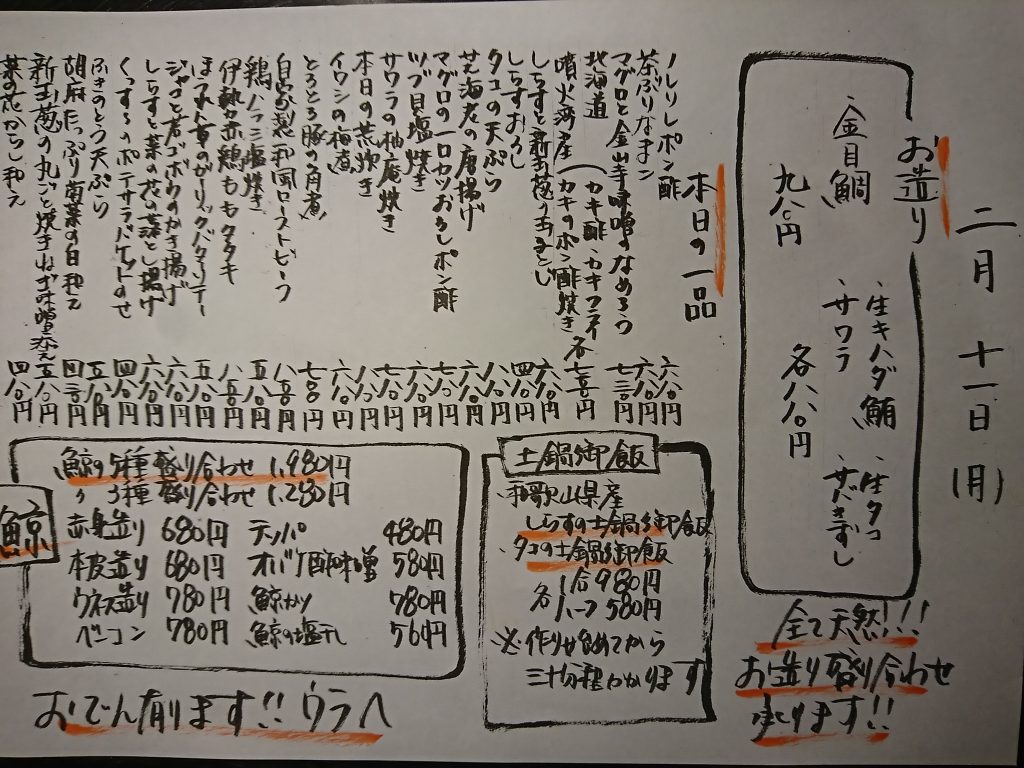 二月十一日(月)
お造り
・金目鯛 九八〇円
・生キハダ鮪 ・生タコ
・サワラ ・サバきずし
各八八〇円
全て天然!!!
お造り盛り合わせ
承ります!!
本日の一品
ノレソレポン酢 六八〇円
茶ぶりなまこ 六八〇円
マグロと金山寺味噌のなめろう 七三〇円
北海道
噴火湾産(カキ酢・カキフライ
(カキのポン酢焼き 各七三〇円
しらすと新玉葱の玉子とじ 六八〇円
しらすおろし 四八〇円
タコの天ぷら 八八〇円
芝海老の唐揚げ 六八〇円
マグロの一口カツおろしポン酢 七八〇円
ツブ貝塩焼き 六八〇円
サワラの柚庵焼き 七八〇円
本日の荒炊き 八八〇円
イワシの梅煮 六八〇円
とろとろ豚の角煮 七八〇円
自家製和風ローストビーフ 八八〇円
鶏ハツ塩焼き 五八〇円
伊勢赤鶏ももタタキ 八八〇円
のガーリックバターソテー 五八〇円
ジャコと若ゴボウのかき揚げ 六八〇円
しらすと菜の花の落とし揚げ 六八〇円
くっすんのポテサラバケットのせ 四八〇円
ふきのとう天ぷら 五八〇円
胡麻たっぷり南菜の白和え 四三〇円
新玉葱の丸ごと焼きねぎ味噌添え 五八〇円
菜の花からし和え 四八〇円
土鍋御飯
・和歌山県産
しらすの土鍋御飯
・タコの土鍋御飯
各 1合980円
ハーフ580円
※作り始めてから
三十分程かかります
鯨
鯨の5種盛り合わせ 1,980円
〃 3種盛り合わせ 1,280円
赤身造り 680円 テッパ 480円
本皮造り 680円 オバケ酢味噌 580円
ウネス造り 780円 鯨カツ 780円
ベーコン 780円 鯨の塩干し 560円
おでん有ります!!ウラへ